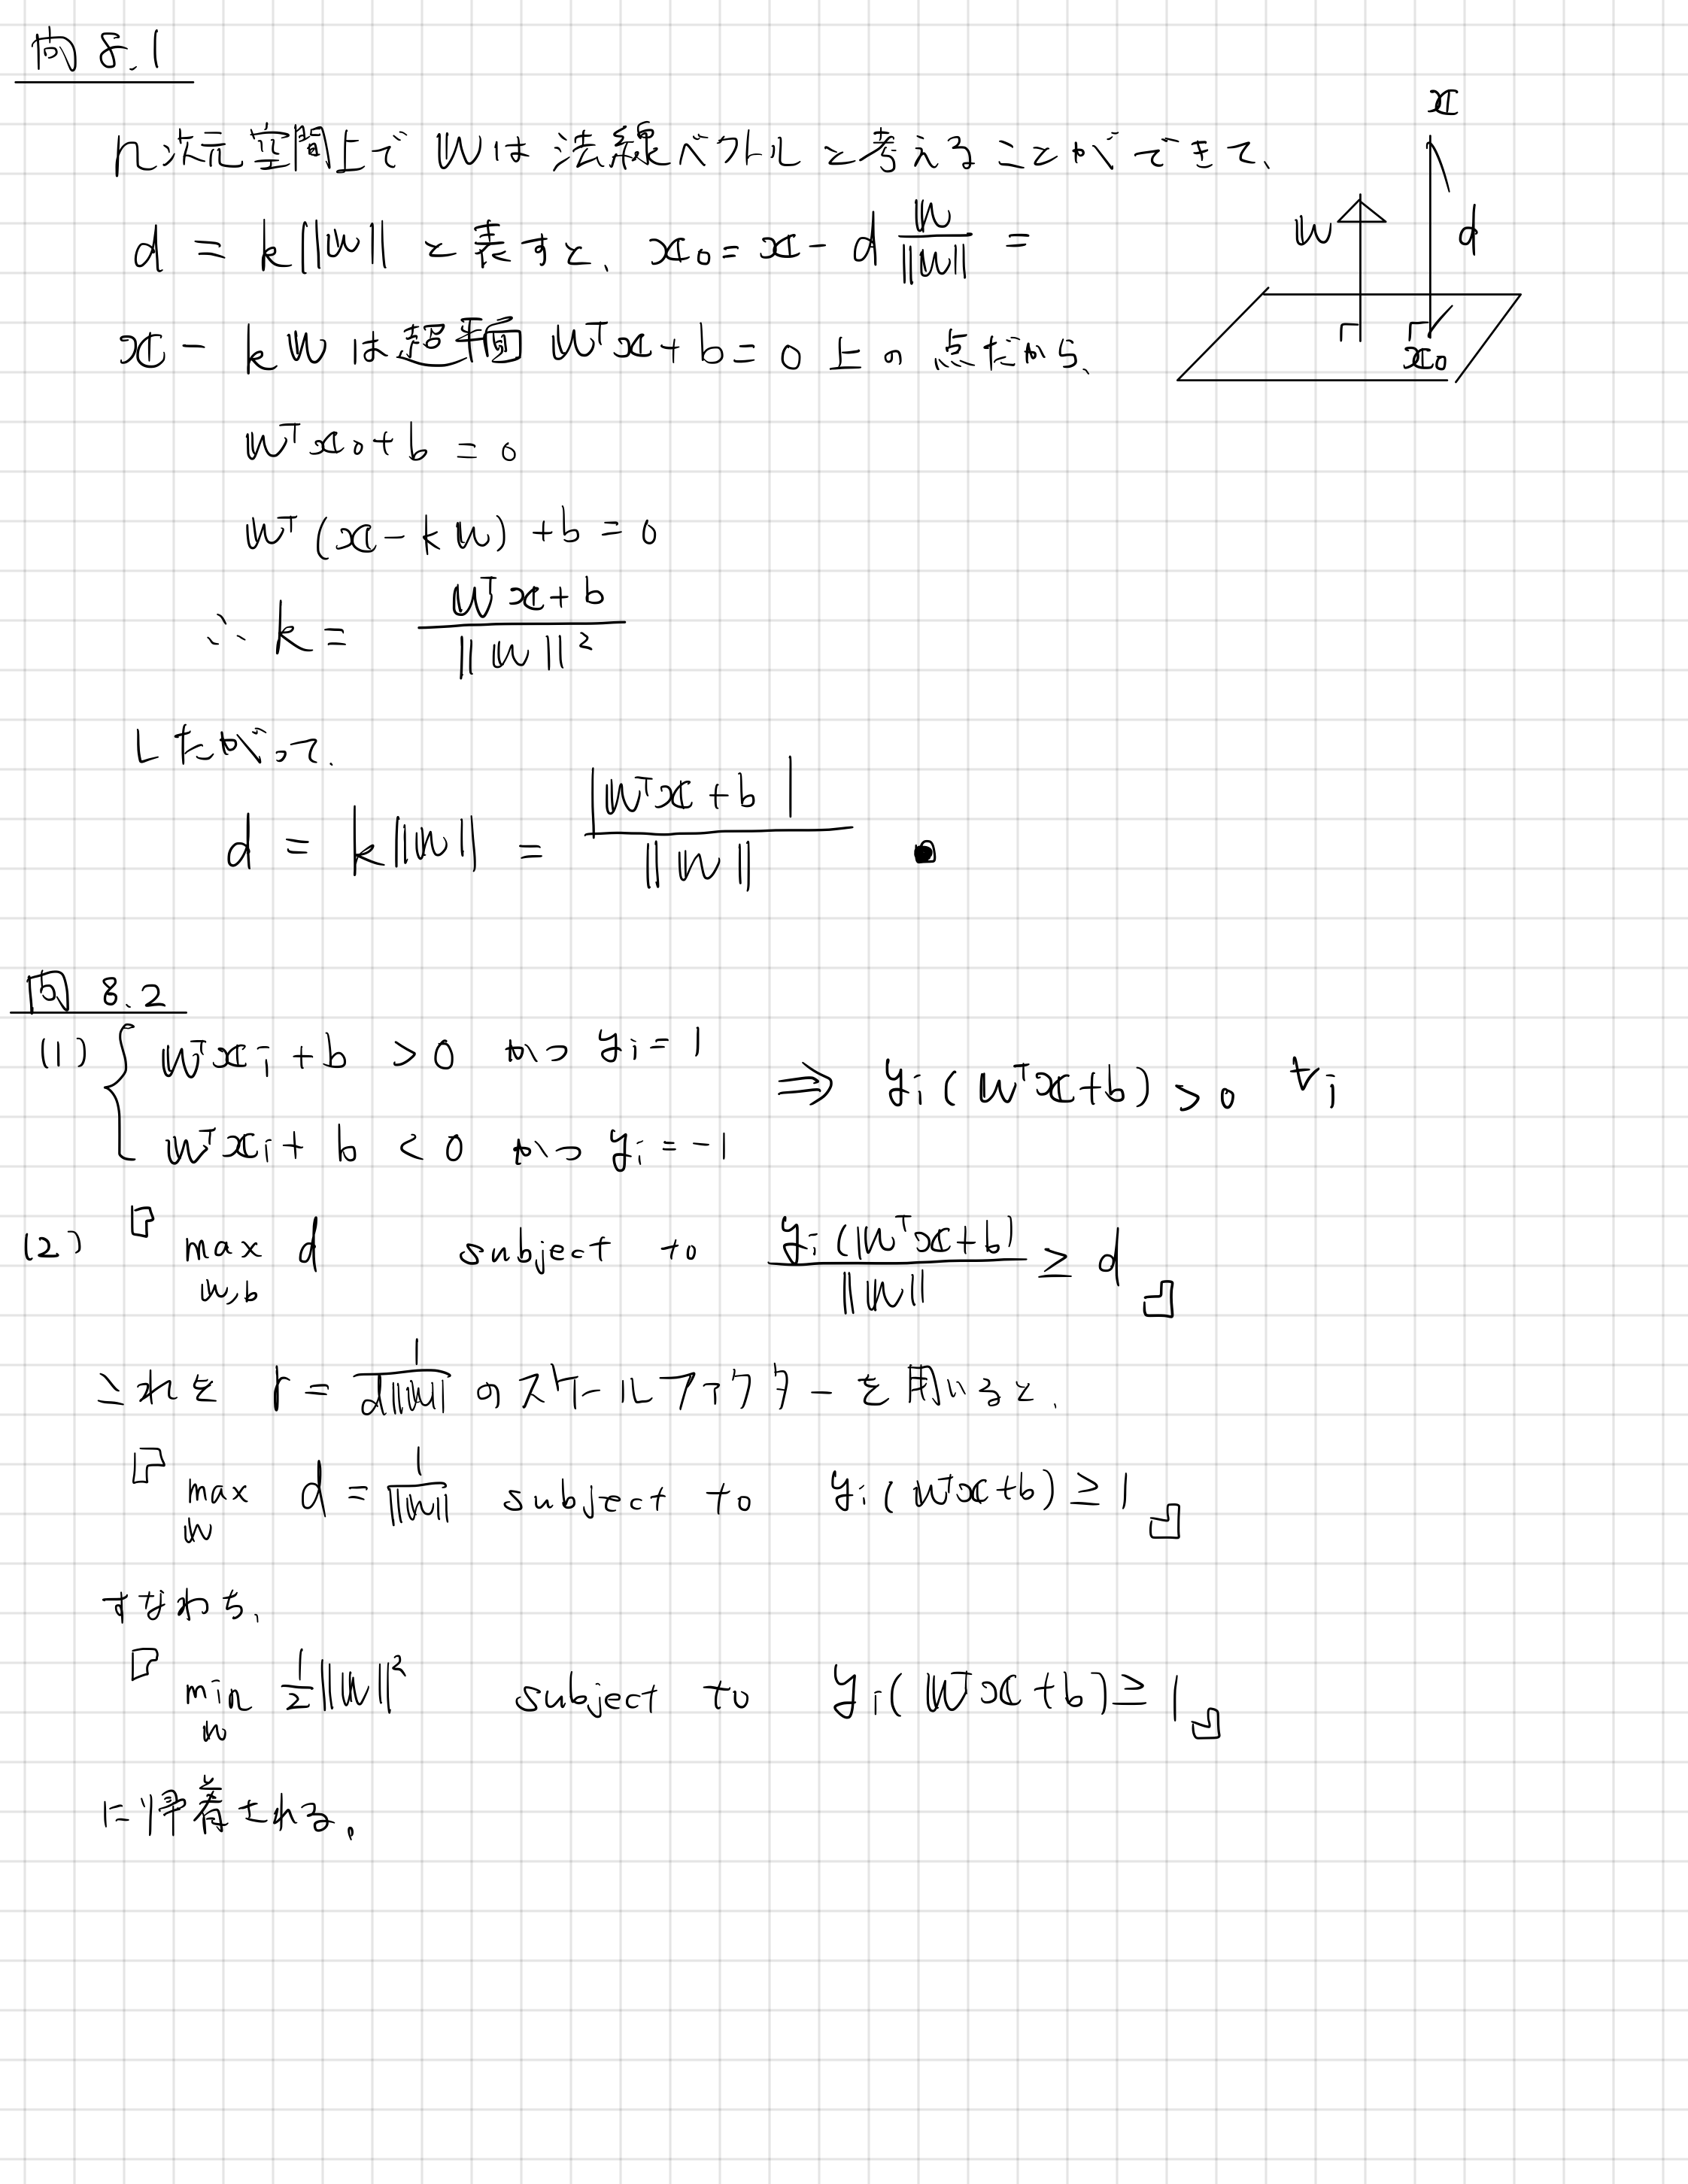 問 8.1
n次元空間上で wは 法線ベクトル と考えることができて、
d = k||w|| と表すと、 x₀ = x - d w/||w|| =
x - kw は超平面 wᵀx + b = 0 上の 点だから、
wᵀx₀ + b = 0
wᵀ(x - kw) + b = 0
∴ k = (wᵀx + b)/||w||²
したがって、
d = k||w|| = |wᵀx + b|/||w||
x
w
d
x₀
問 8.2
(1) { wᵀxᵢ + b > 0 かつ yᵢ = 1
wᵀxᵢ + b < 0 かつ yᵢ = -1
⇒ yᵢ(wᵀx + b) > 0 ∀i
(2) 『 max_{w,b} d subject to yᵢ(wᵀx + b)/||w|| ≥ d 』
これを r = 1/(d||w||) のスケールファクターを用いると、
『 max_w d = 1/||w|| subject to yᵢ(wᵀx + b) ≥ 1 』
すなわち、
『 min_w 1/2||w||² subject to yᵢ(wᵀx + b) ≥ 1 』
に帰着される。